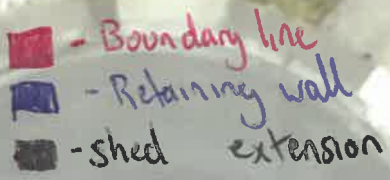 - Boundary line
- Retaining wall
- shed extension